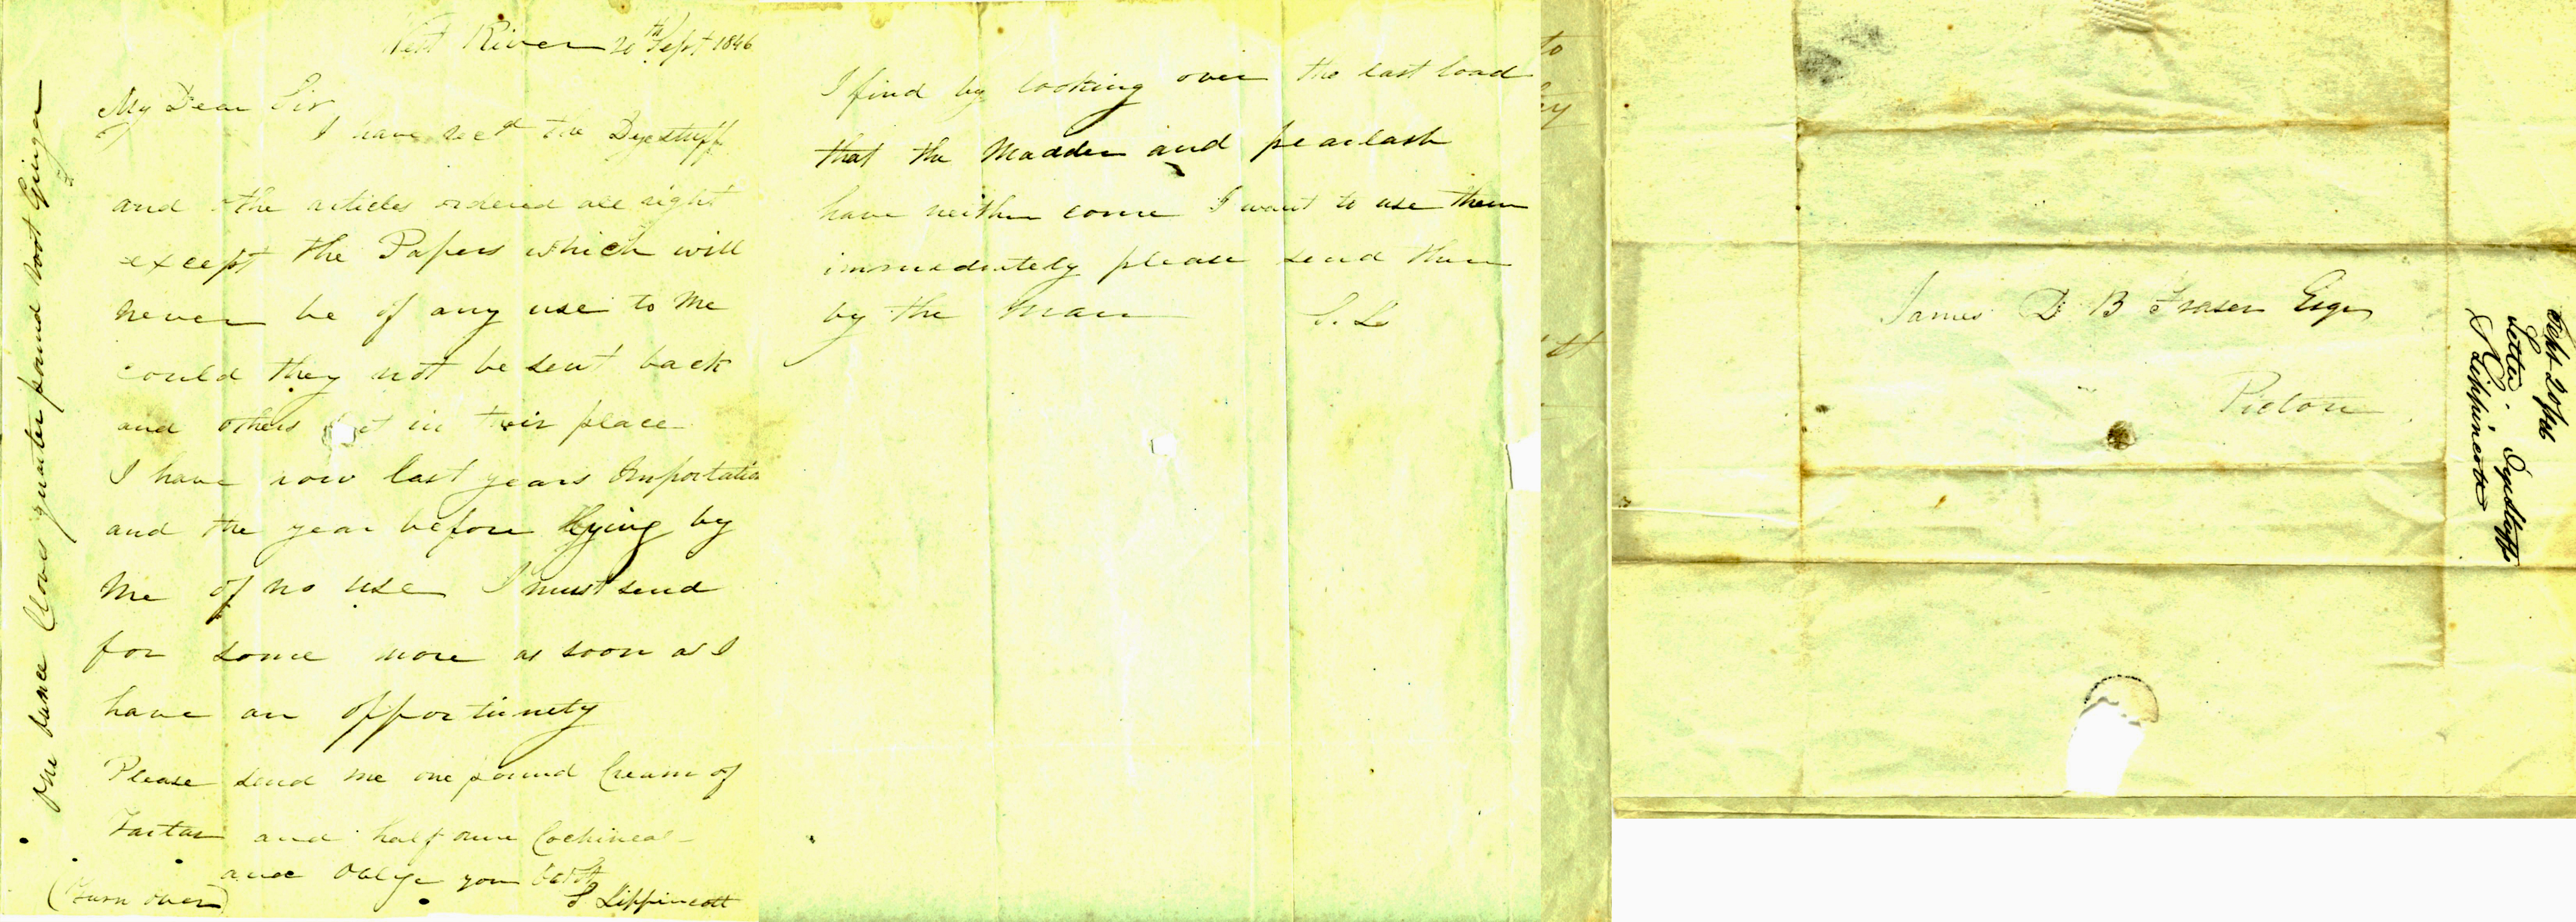 West River 20th Sept 1846
My Dear Sir
I have recd the Dyestuff
and the articles ordered all right
except the Papers which will
never be of any use to me
could they not be sent back
and others in their place
I have now last years Importation
and the year before lying by
me of no use I must send
for some more as soon as I
have an opportunety
Please send me one pound Cream of
Tartar and half ounce Cochineal
and Oblige your
S Lippincott
(Turn over)
one ounce Cloves quarter pound root Ginger
I find by looking over the last load
that the Madder and pearlash
have neither come I want to use them
immediately please send them
by the man S. L
to
ey
tt
James D B Fraser Esqr
Pictou
Sept 20/46
Letter. Dyestuff
S Lippincott